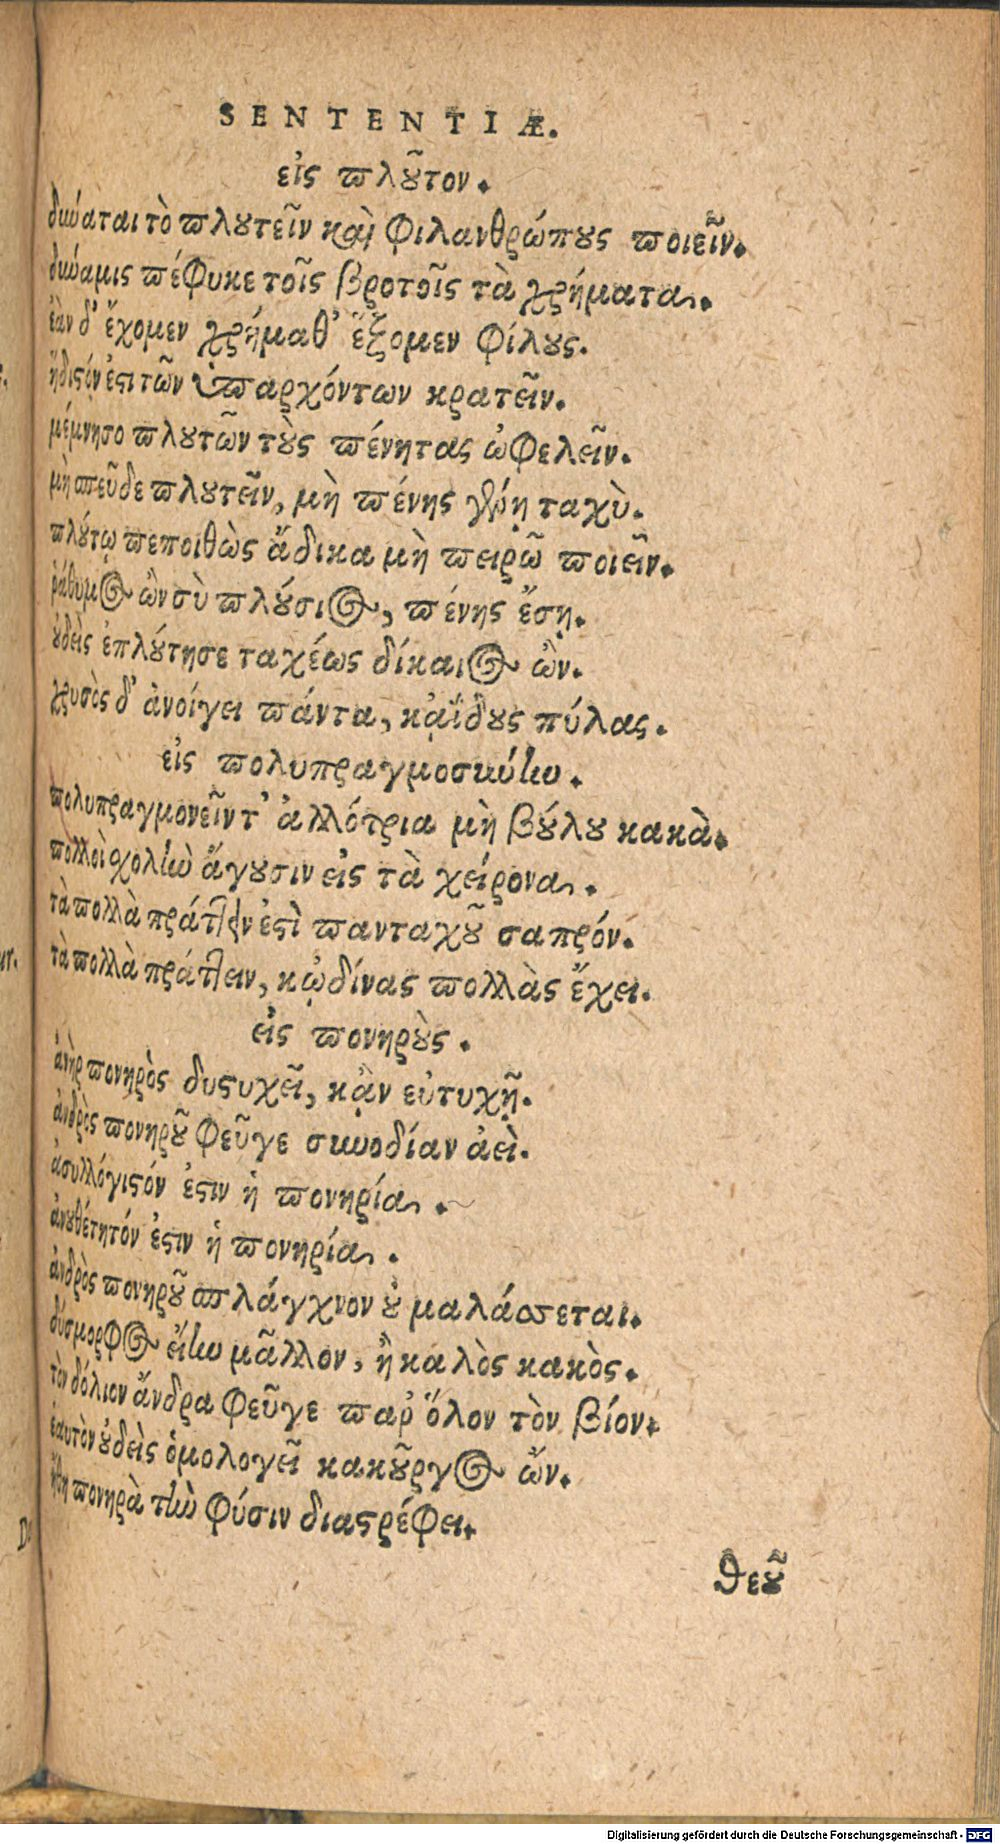 SENTENTIÆ.
εἰς πλοῦτον.
δύναται τὸ πλουτεῖν καὶ φιλανθρώπους ποιεῖν.
δύναμις πέφυκε τοῖς βροτοῖς τὰ χρήματα.
ἐὰν δ' ἔχομεν χρήμαθ' ἕξομεν φίλους.
ἥδιστόν ἐστι τῶν ὑπαρχόντων κρατεῖν.
μέμνησο πλουτῶν τοὺς πένητας ὠφελεῖν.
μὴ σπεῦδε πλουτεῖν, μὴ πένης γένῃ ταχὺ.
πλούτῳ πεποιθὼς ἄδικα μὴ πειρῶ ποιεῖν.
ῥάθυμος ὢν σὺ πλούσιος, πένης ἔσῃ.
οὐδεὶς ἐπλούτησε ταχέως δίκαιος ὢν.
χρυσὸς δ' ἀνοίγει πάντα, κᾀΐδους πύλας.
εἰς πολυπραγμοσύνην.
πολυπραγμονεῖν τ' ἀλλότρια μὴ βούλου κακὰ.
πολλοὶ σχολὴν ἄγουσιν εἰς τὰ χείρονα.
τὰ πολλὰ πράττειν ἐστὶ πανταχοῦ σαπρόν.
τὰ πολλὰ πράττειν, κᾠδίνας πολλὰς ἔχει.
εἰς πονηροὺς.
ἀνὴρ πονηρὸς δυστυχεῖ, κᾂν εὐτυχῇ.
ἀνδρὸς πονηροῦ φεῦγε συνοδίαν ἀεὶ.
ἀσυλλόγιστόν ἐστιν ἡ πονηρία.
ἀνουθέτητόν ἐστιν ἡ πονηρία.
ἀνδρὸς πονηροῦ σπλάγχνον οὐ μαλάσσεται.
δύσμορφος εἴην μᾶλλον, ἢ καλὸς κακὸς.
τὸν δόλιον ἄνδρα φεῦγε παρ' ὅλον τὸν βίον.
ἑαυτὸν οὐδεὶς ὁμολογεῖ κακοῦργος ὤν.
ἤθη πονηρὰ τὴν φύσιν διαστρέφει.
θεοῦ
Digitalisierung gefördert durch die Deutsche Forschungsgemeinschaft - DFG